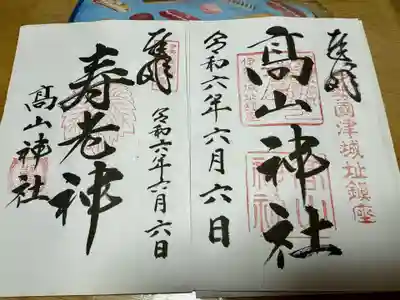 奉拝
伊勢國津城址鎮座
高山神社
令和六年六月六日
奉拝
寿老神
令和六年六月六日
高山神社